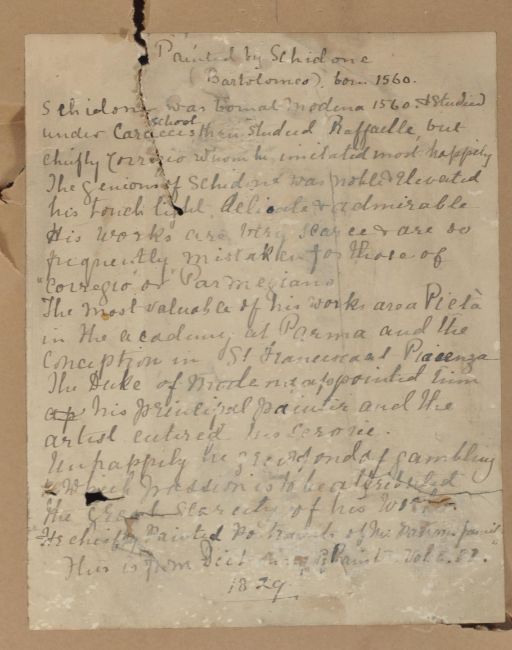 Painted by Schidone
(Bartolomeo) born 1560.
Schidone was born at Modena 1560 & Studied
under Caracci's school then Studied Raffaelle but
chiefly Corregio whom he imitated most happily
The genious of Schidone was noble & Elevated
his touch light, delicate & admirable
His works are very scarce & are so
frequently mistaken for those of
"Corregio" or "Parmegiano
The most valuable of his works are a Pietà
in the academy at Parma and the
Conception in St Francisco at Piacenza
The Duke of Modena appointed him
ap his principal painter and the
artist entered his
Unhappily he grew fond of gambling
which passion is to be attributed
the great scarcity of his works
He chiefly Painted Portraits of the
This is from Paint Vol
1829.